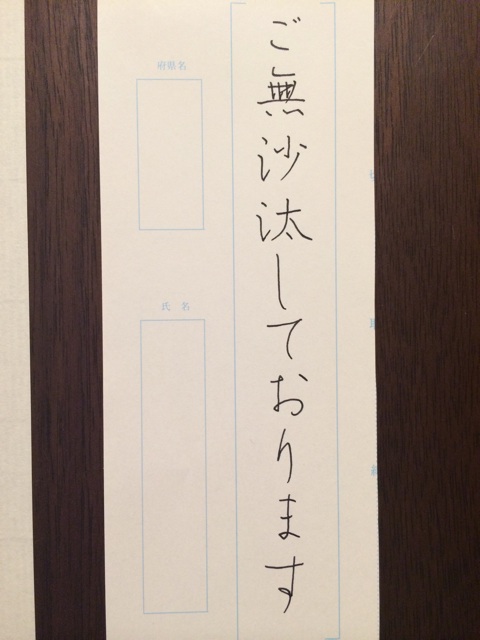 ご無沙汰しております
府県名
氏名